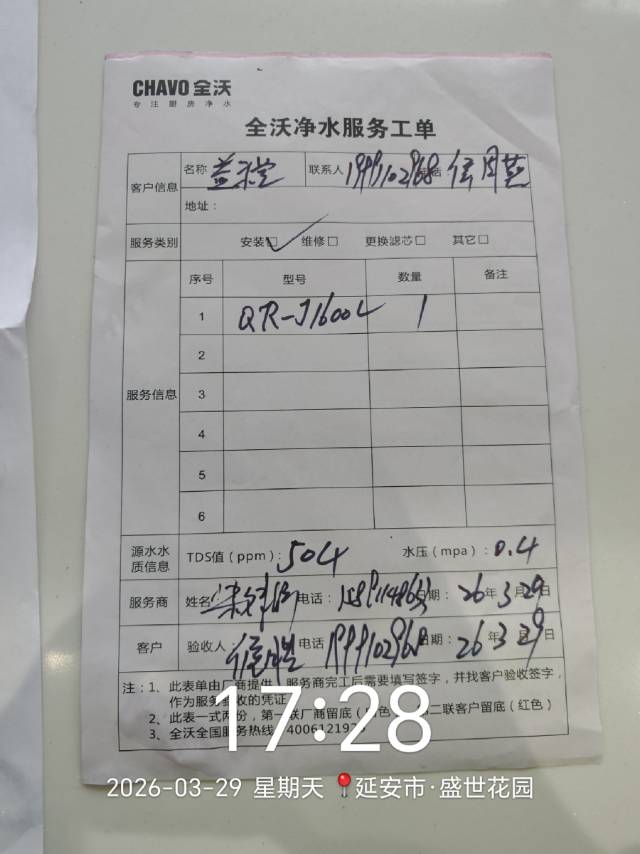 CHAVO 全沃
专注厨房净水
全沃净水服务工单
客户信息 名称 联系人 电话
地址：
服务类别 安装☑ 维修□ 更换滤芯□ 其它□
服务信息 序号 型号 数量 备注
1 QR-J1600L 1
2
3
4
5
6
源水水质信息 TDS值（ppm）：504 水压（mpa）：0.4
服务商 姓名 电话： 日期：26年3月29日
客户 验收人： 电话 日期：26年3月29日
注：1、此表单由厂商提供，服务商完工后需要填写签字，并找客户验收签字，
作为服务验收的凭证
2、此表一式两份，第一联厂商留底 二联客户留底（红色）
3、全沃全国服务热线
17:28
2026-03-29 星期天 延安市·盛世花园